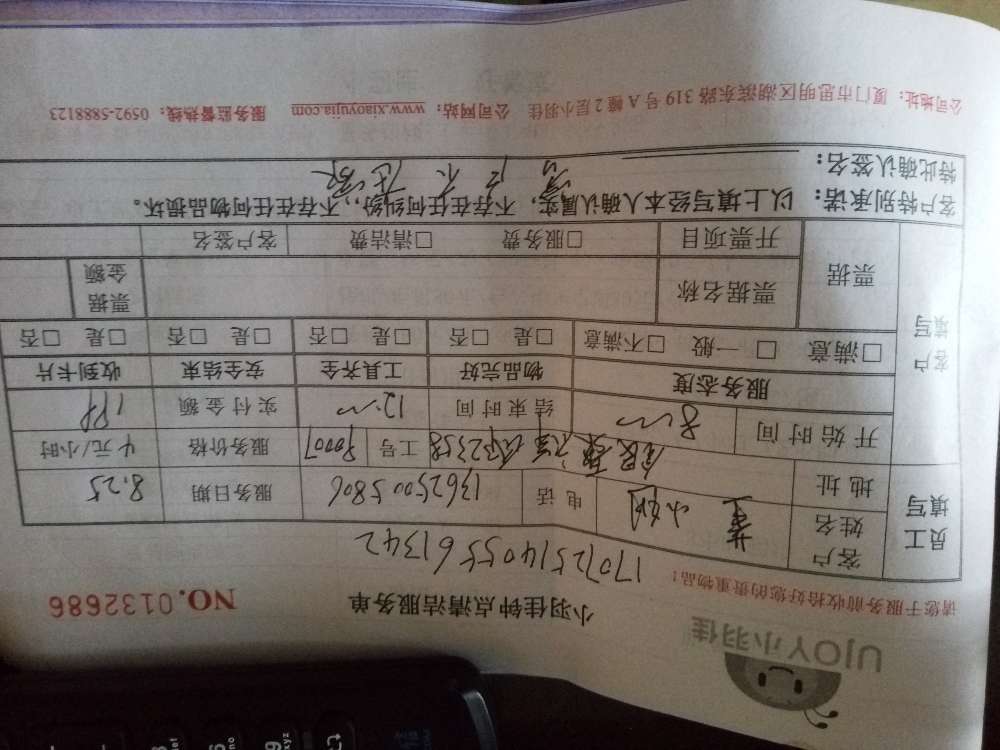 UJOY小羽佳
请您于服务前收拾好您的贵重物品！
小羽佳钟点清洁服务单
NO.0132686
1707251405561342
员工填写
客户姓名 董小姐 电话 13625005806 服务日期 8.25
地址 工号 90007 服务价格 元/小时
开始时间 8:00 结束时间 12:00 实付金额
客户填写
服务态度 物品完好 工具齐全 安全结束 收到卡片
□满意 □一般 □不满意 □是 □否 □是 □否 □是 □否 □是 □否
票据 票据名称 票据金额
开票项目 □服务费 □清洁费 客户签名
客户特别承诺：以上填写经本人确认属实，不存在任何纠纷，不存在任何物品损坏。
特此确认签名：
公司地址：厦门市思明区湖滨东路319号A幢2层小羽佳 公司网站：www.xiaoyujia.com 服务监督热线：0592-5888123